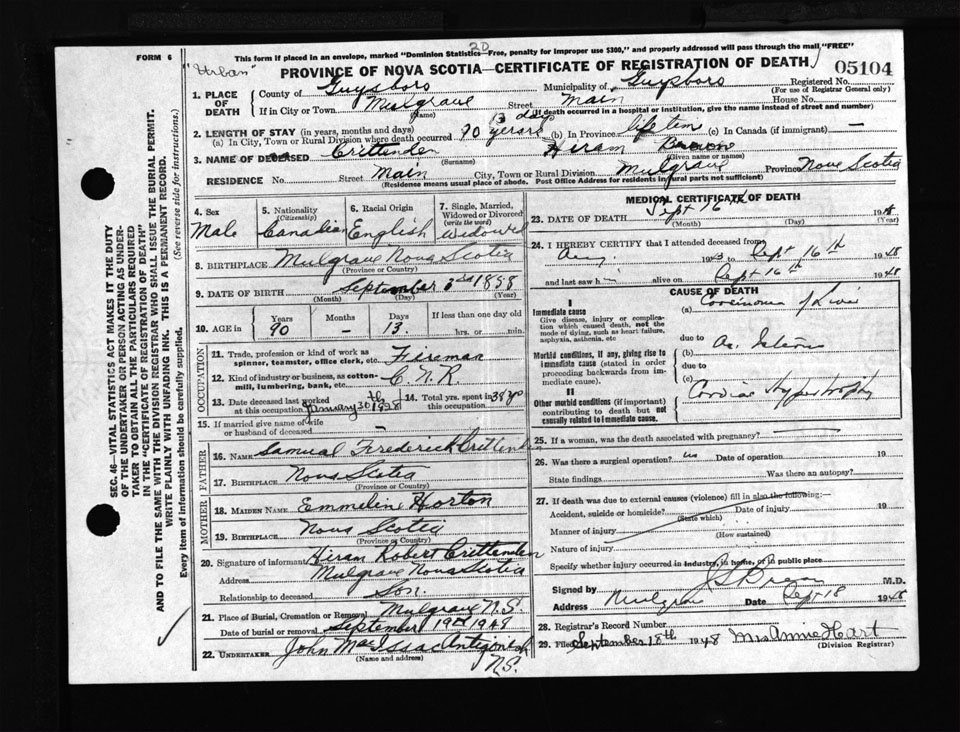 FORM 6
This form if placed in an envelope, marked "Dominion Statistics—Free, penalty for improper use $300," and properly addressed will pass through the mail "FREE"
20
"Urban"
PROVINCE OF NOVA SCOTIA—CERTIFICATE OF REGISTRATION OF DEATH
05104
1. PLACE OF DEATH
County of Guysboro Municipality of Guysboro Registered No.
(For use of Registrar General only)
If in City or Town Mulgrave Street Main House No.
(Name) (If death occurred in a hospital or institution, give the name instead of street and number)
2. LENGTH OF STAY (in years, months and days)
(a) In City, Town or Rural Division where death occurred 90 years 13 d (b) In Province life tim (c) In Canada (if immigrant) —
3. NAME OF DECEASED Crittenden Hiram
(Surname) (Given name or names)
RESIDENCE No. Street Main City, Town or Rural Division Mulgrave Province Nova Scotia
(Residence means usual place of abode. Post Office Address for residents in rural parts not sufficient)
4. Sex Male
5. Nationality (Citizenship) Canadian
6. Racial Origin English
7. Single, Married, Widowed or Divorced (write the word) Widowed
8. BIRTHPLACE Mulgrave Nova Scotia
(Province or Country)
9. DATE OF BIRTH September 3rd 1858
(Month) (Day) (Year)
10. AGE in Years Months Days If less than one day old
90 — 13 hrs. or min.
OCCUPATION
11. Trade, profession or kind of work as spinner, teamster, office clerk, etc. Fireman
12. Kind of industry or business, as cotton-mill, lumbering, bank, etc. C.N.R
13. Date deceased last worked at this occupation January 30th 1928
14. Total yrs. spent in this occupation 38 yrs
15. If married give name of wife or husband of deceased —
FATHER
16. NAME Samual Frederick Crittenden
17. BIRTHPLACE Nova Scotia
(Province or Country)
MOTHER
18. MAIDEN NAME Emmelin Horton
19. BIRTHPLACE Nova Scotia
(Province or Country)
20. Signature of informant Hiram Robert Crittenden
Address Mulgrave Nova Scotia
Relationship to deceased Son.
21. Place of Burial, Cremation or Removal Mulgrave N.S.
Date of burial or removal September 19th 1948
22. UNDERTAKER John MacIsaac Antigonish
(Name and address) N.S.
MEDICAL CERTIFICATE OF DEATH
23. DATE OF DEATH Sept 16th 1948
(Month) (Day) (Year)
24. I HEREBY CERTIFY that I attended deceased from
Aug. 1943 to Sept 16th 1948
and last saw h alive on Sept 16th 1948
CAUSE OF DEATH
I
Immediate cause
Give disease, injury or complication which caused death, not the mode of dying, such as heart failure, asphyxia, asthenia, etc
(a) Carcinoma of
due to
Morbid conditions, if any, giving rise to immediate cause (stated in order proceeding backwards from immediate cause).
(b)
due to
(c)
II
Other morbid conditions (if important) contributing to death but not causally related to immediate cause.
Cardiac hypertrophy
25. If a woman, was the death associated with pregnancy?
26. Was there a surgical operation? no Date of operation 19
State findings Was there an autopsy?
27. If death was due to external causes (violence) fill in also the following:—
Accident, suicide or homicide? Date of injury 19
(State which)
Manner of injury
(How sustained)
Nature of injury
Specify whether injury occurred in industry, in home, or in public place
Signed by M.D.
Address Mulgrave Date Sept 18 1948
28. Registrar's Record Number
29. Filed September 18th 1948 Mrs Annie Hart
(Division Registrar)
SEC. 46—VITAL STATISTICS ACT MAKES IT THE DUTY
OF THE UNDERTAKER OR PERSON ACTING AS UNDER-
TAKER TO OBTAIN ALL THE PARTICULARS REQUIRED
IN THE "CERTIFICATE OF REGISTRATION OF DEATH"
AND TO FILE THE SAME WITH THE DIVISION REGISTRAR WHO SHALL ISSUE THE BURIAL PERMIT.
WRITE PLAINLY WITH UNFADING INK. THIS IS A PERMANENT RECORD.
Every item of Information should be carefully supplied. (See reverse side for instructions.)